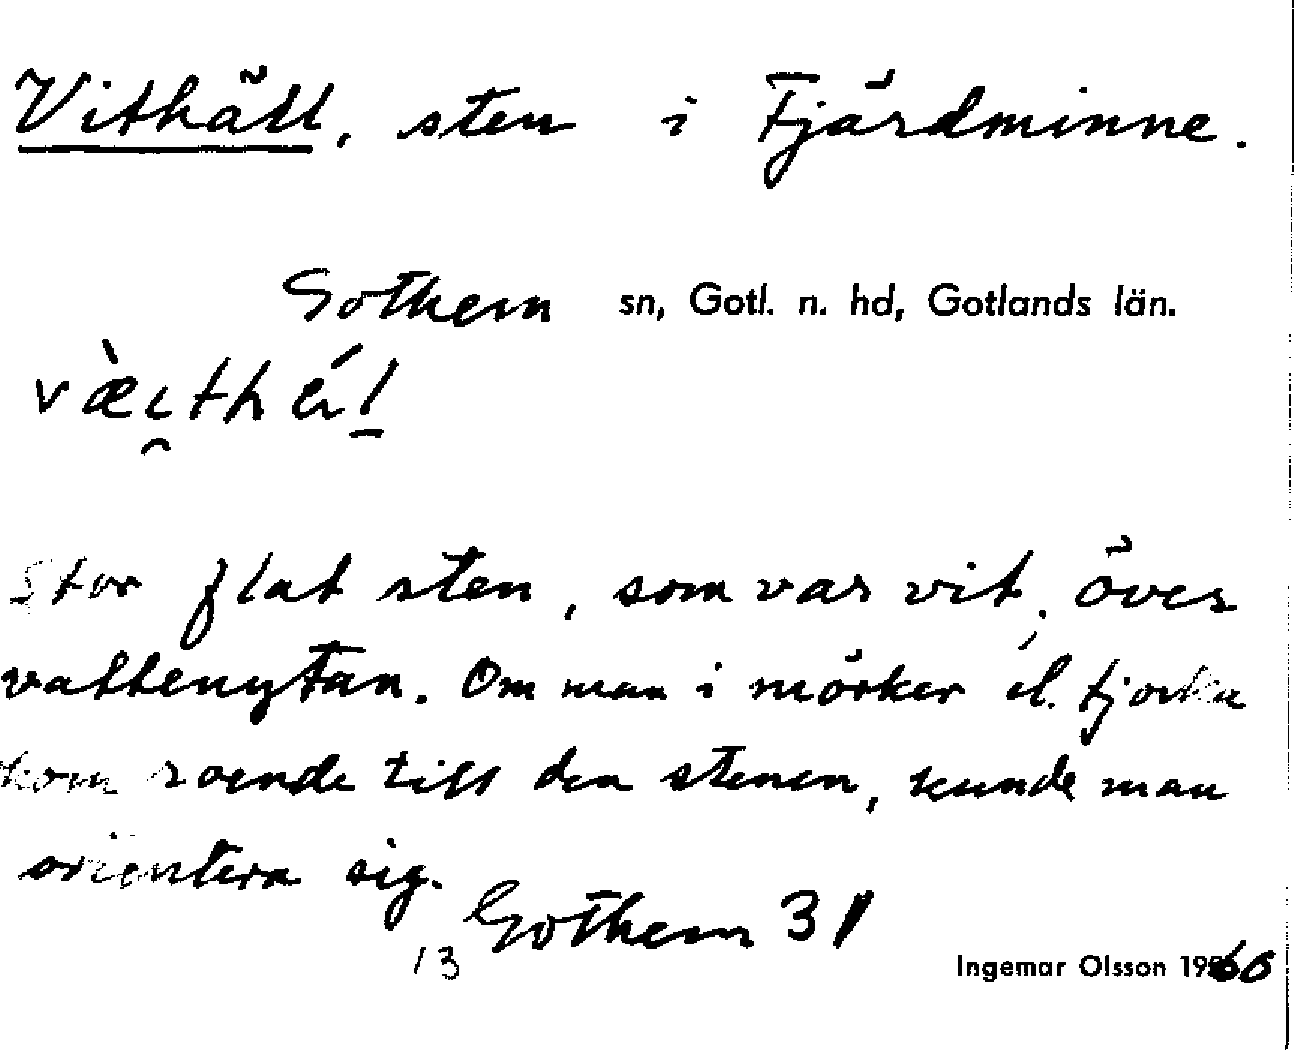 Vithäll, sten i Fjärdminne.
Gothem sn, Gotl. n. hd, Gotlands län.
væ̀i̯thé̵l̲
Stor flat sten, som var vit, över
vattenytan. Om man i mörker el. tjocka
kom roende till den stenen, kunde man
orientera sig.
Gothem 31
13
Ingemar Olsson 1960